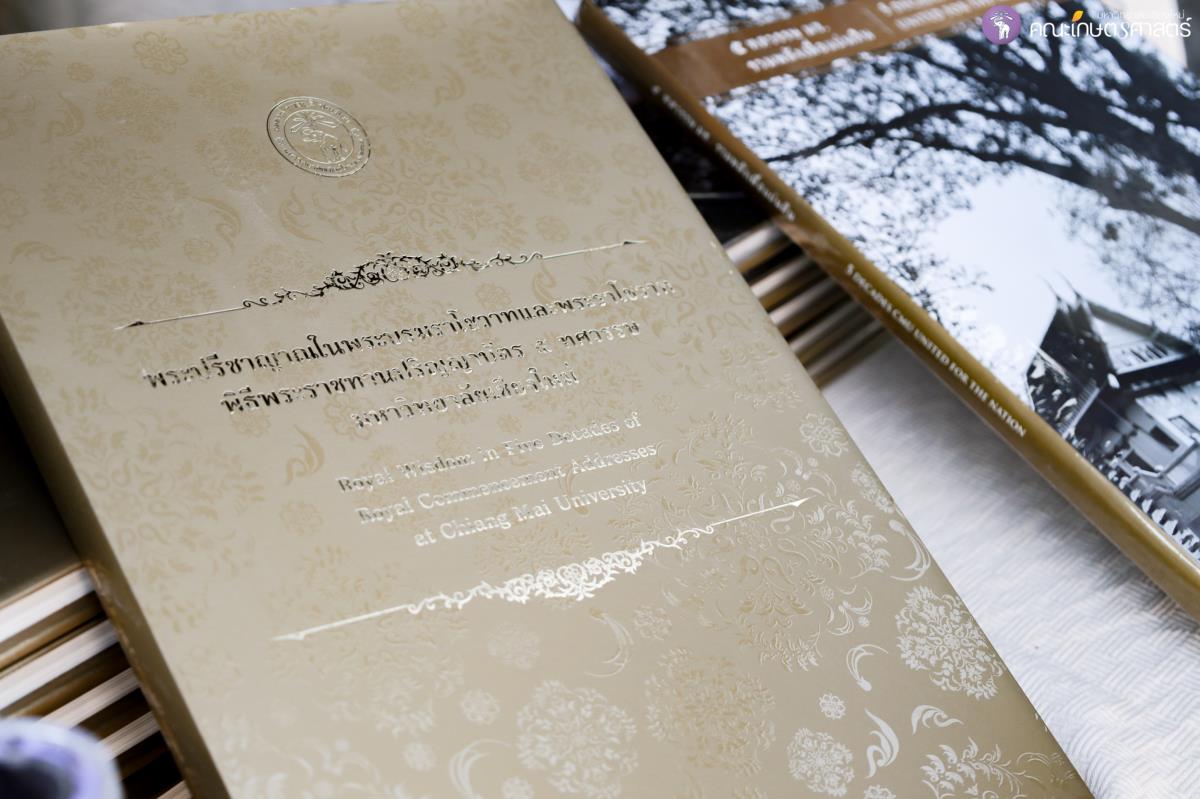 พระปรีชาญาณในพระบรมราโชวาทและพระราโชวาท
พิธีพระราชทานปริญญาบัตร ๕ ทศวรรษ
มหาวิทยาลัยเชียงใหม่
Royal Wisdom in Five Decades of
Royal Commencement Addresses
at Chiang Mai University
๕ ทศวรรษ มช.
รวมพลังเพื่อแผ่นดิน
UNITED FOR THE
5 DECADES CMU UNITED FOR THE NATION
มหาวิทยาลัยเชียงใหม่
คณะเกษตรศาสตร์